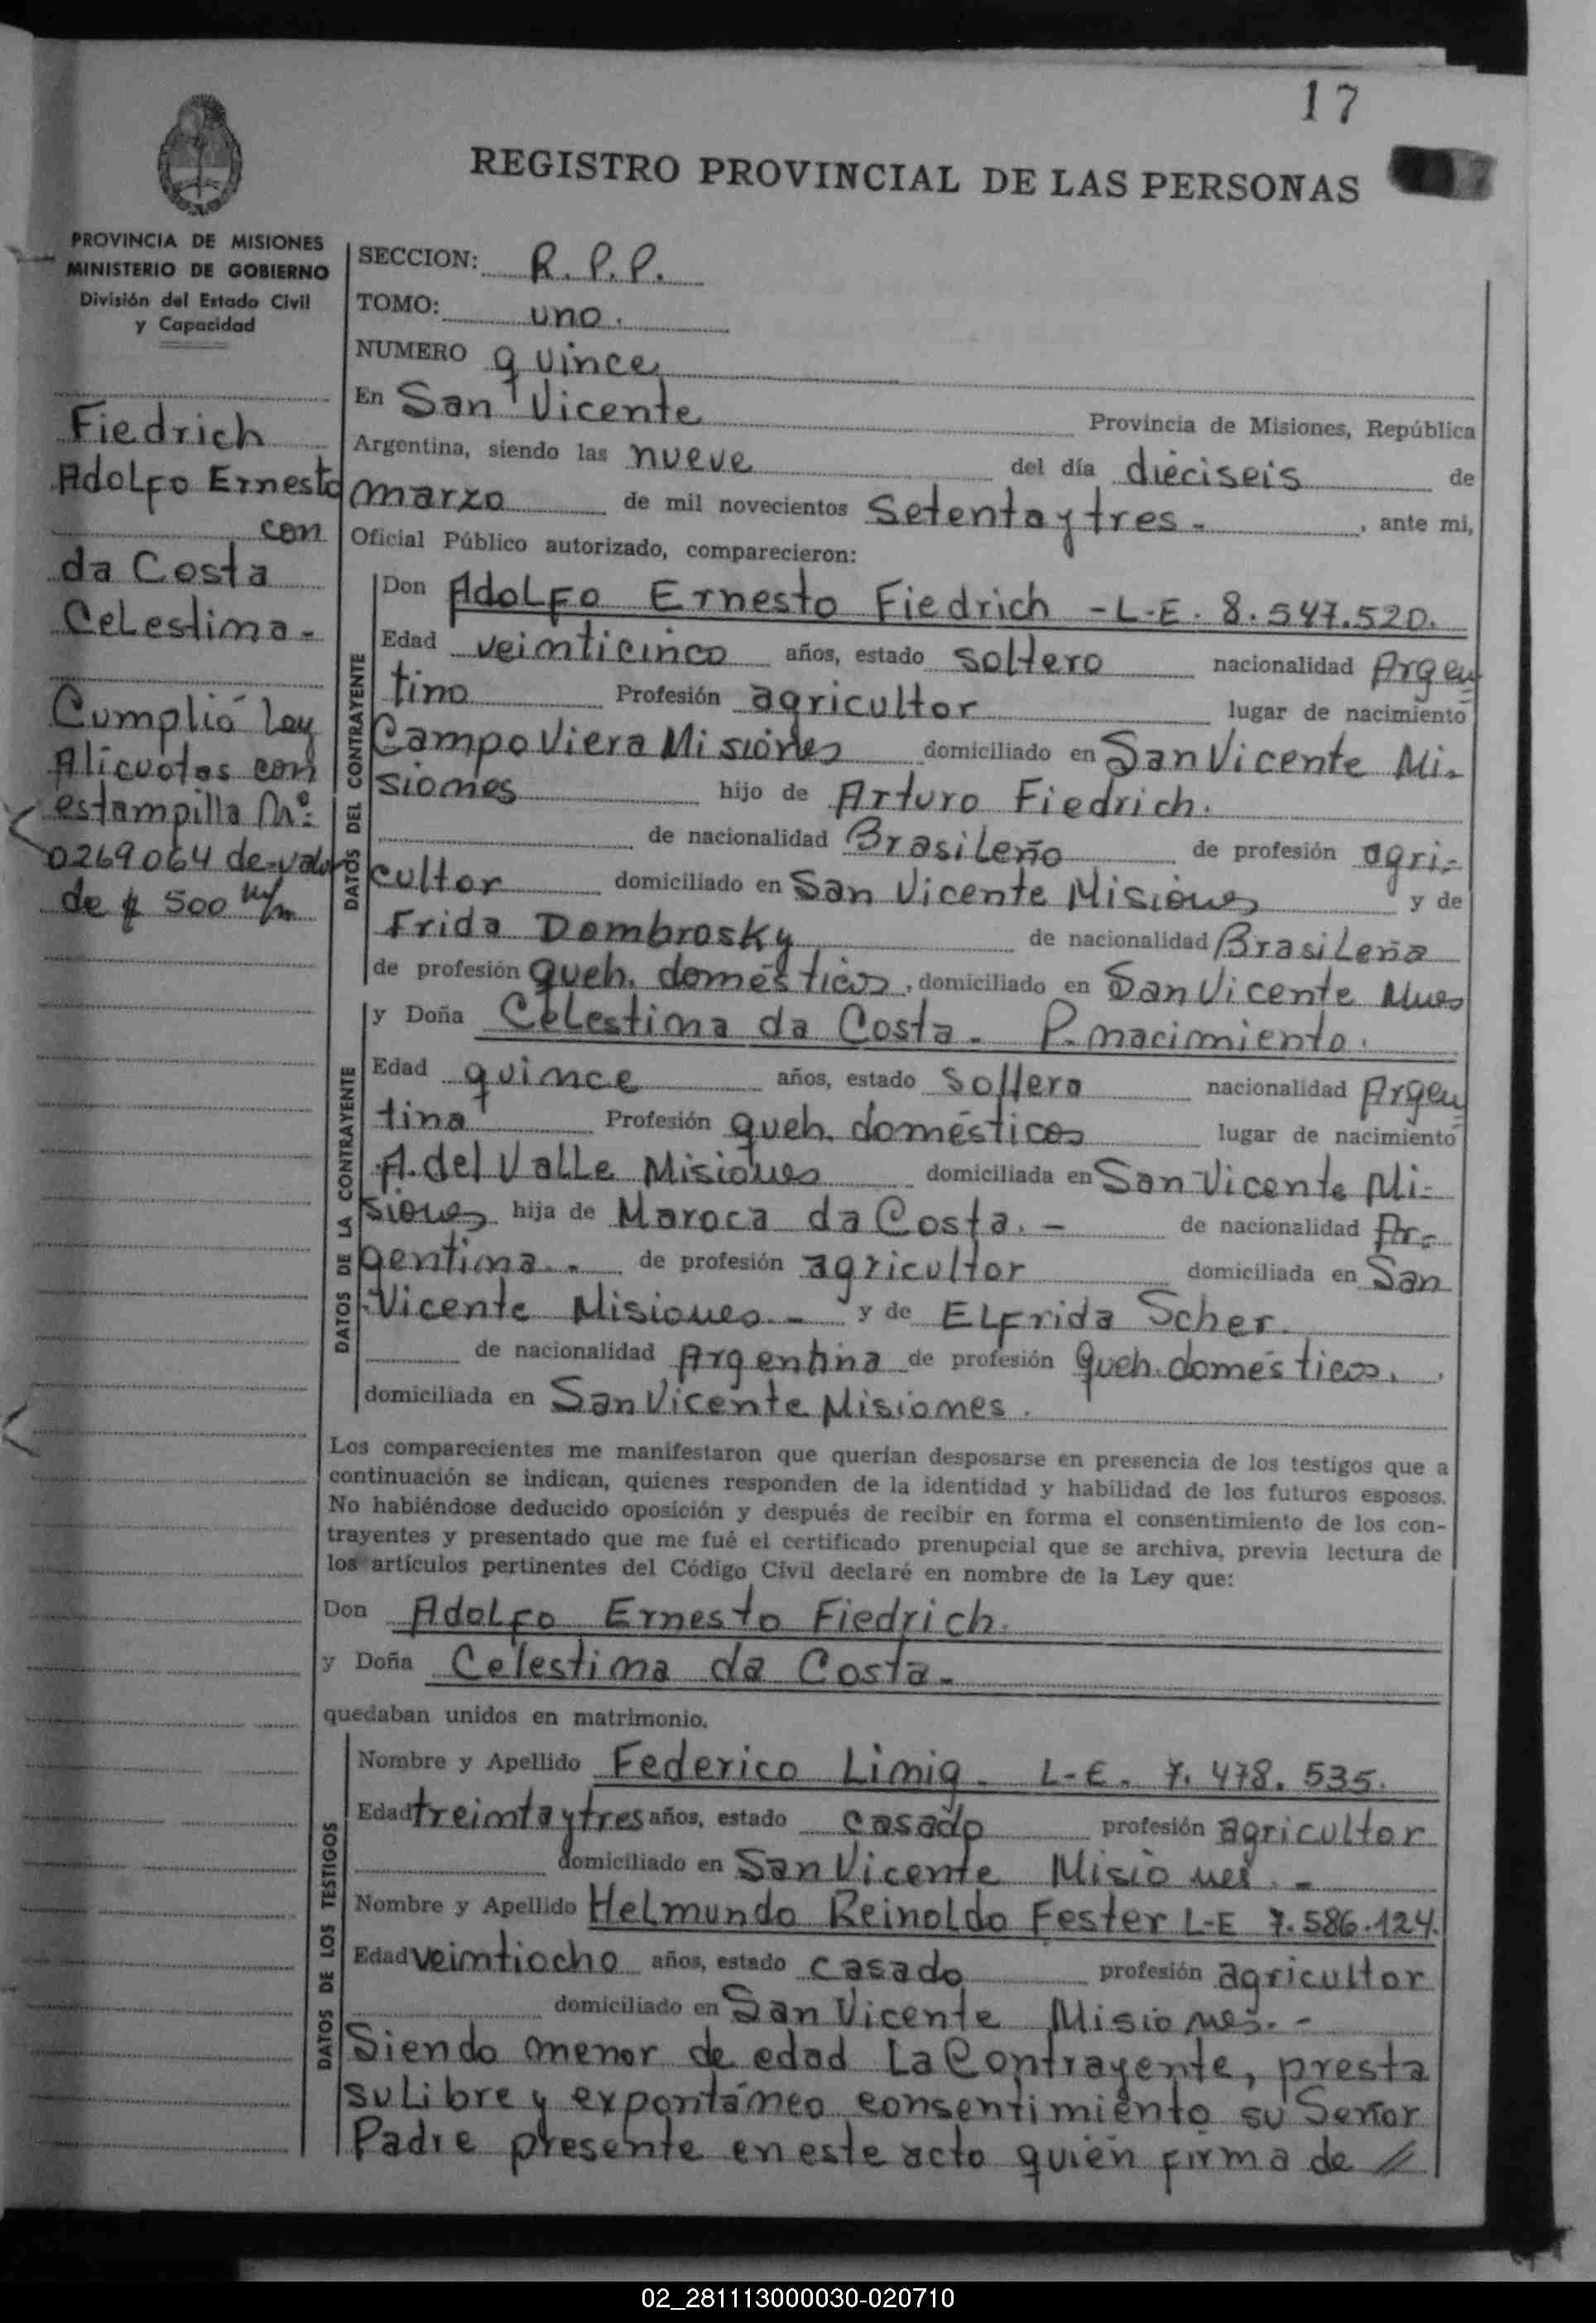 17
REGISTRO PROVINCIAL DE LAS PERSONAS
PROVINCIA DE MISIONES
MINISTERIO DE GOBIERNO
División del Estado Civil
y Capacidad
Fiedrich
Adolfo Ernesto
con
da Costa
Celestina.-
Cumplió Ley
Alicuotas con
estampilla Nº:
0269064 de valor
de $ 500 m/n
SECCION: R.P.P.
TOMO: uno.
NUMERO quince
En San Vicente Provincia de Misiones, República
Argentina, siendo las nueve del día dieciseis de
marzo de mil novecientos Setenta y tres.- , ante mi,
Oficial Público autorizado, comparecieron:
DATOS DEL CONTRAYENTE
Don Adolfo Ernesto Fiedrich -L-E. 8.547.520.
Edad veinticinco años, estado soltero nacionalidad Argen
tino Profesión agricultor lugar de nacimiento
Campo Viera Misiones domiciliado en San Vicente Mi-
siones hijo de Arturo Fiedrich.
de nacionalidad Brasileño de profesión agri-
cultor domiciliado en San Vicente Misiones y de
Frida Dombrosky de nacionalidad Brasileña
de profesión queh. domésticos, domiciliado en San Vicente Mnes
DATOS DE LA CONTRAYENTE
y Doña Celestina da Costa. P. nacimiento.
Edad quince años, estado soltera nacionalidad Argen
tina Profesión queh. domésticos lugar de nacimiento
A. del Valle Misiones domiciliada en San Vicente Mi-
siones hija de Maroca da Costa. - de nacionalidad Ar-
gentina.- de profesión agricultor domiciliada en San
Vicente Misiones - y de Elfrida Scher.
de nacionalidad Argentina de profesión queh. domésticos,
domiciliada en San Vicente Misiones.
Los comparecientes me manifestaron que querían desposarse en presencia de los testigos que a
continuación se indican, quienes responden de la identidad y habilidad de los futuros esposos.
No habiéndose deducido oposición y después de recibir en forma el consentimiento de los con-
trayentes y presentado que me fué el certificado prenupcial que se archiva, previa lectura de
los artículos pertinentes del Código Civil declaré en nombre de la Ley que:
Don Adolfo Ernesto Fiedrich.
y Doña Celestina da Costa.-
quedaban unidos en matrimonio.
DATOS DE LOS TESTIGOS
Nombre y Apellido Federico Limig. L-E. 7.478.535.
Edad treinta y tres años, estado casado profesión agricultor
domiciliado en San Vicente Misiones.-
Nombre y Apellido Helmundo Reinoldo Fester L-E 7.586.124.
Edad veintiocho años, estado casado profesión agricultor
domiciliado en San Vicente Misiones.-
Siendo menor de edad La Contrayente, presta
su Libre y expontáneo consentimiento su Señor
Padre presente en este acto quién firma de //
02_281113000030-020710